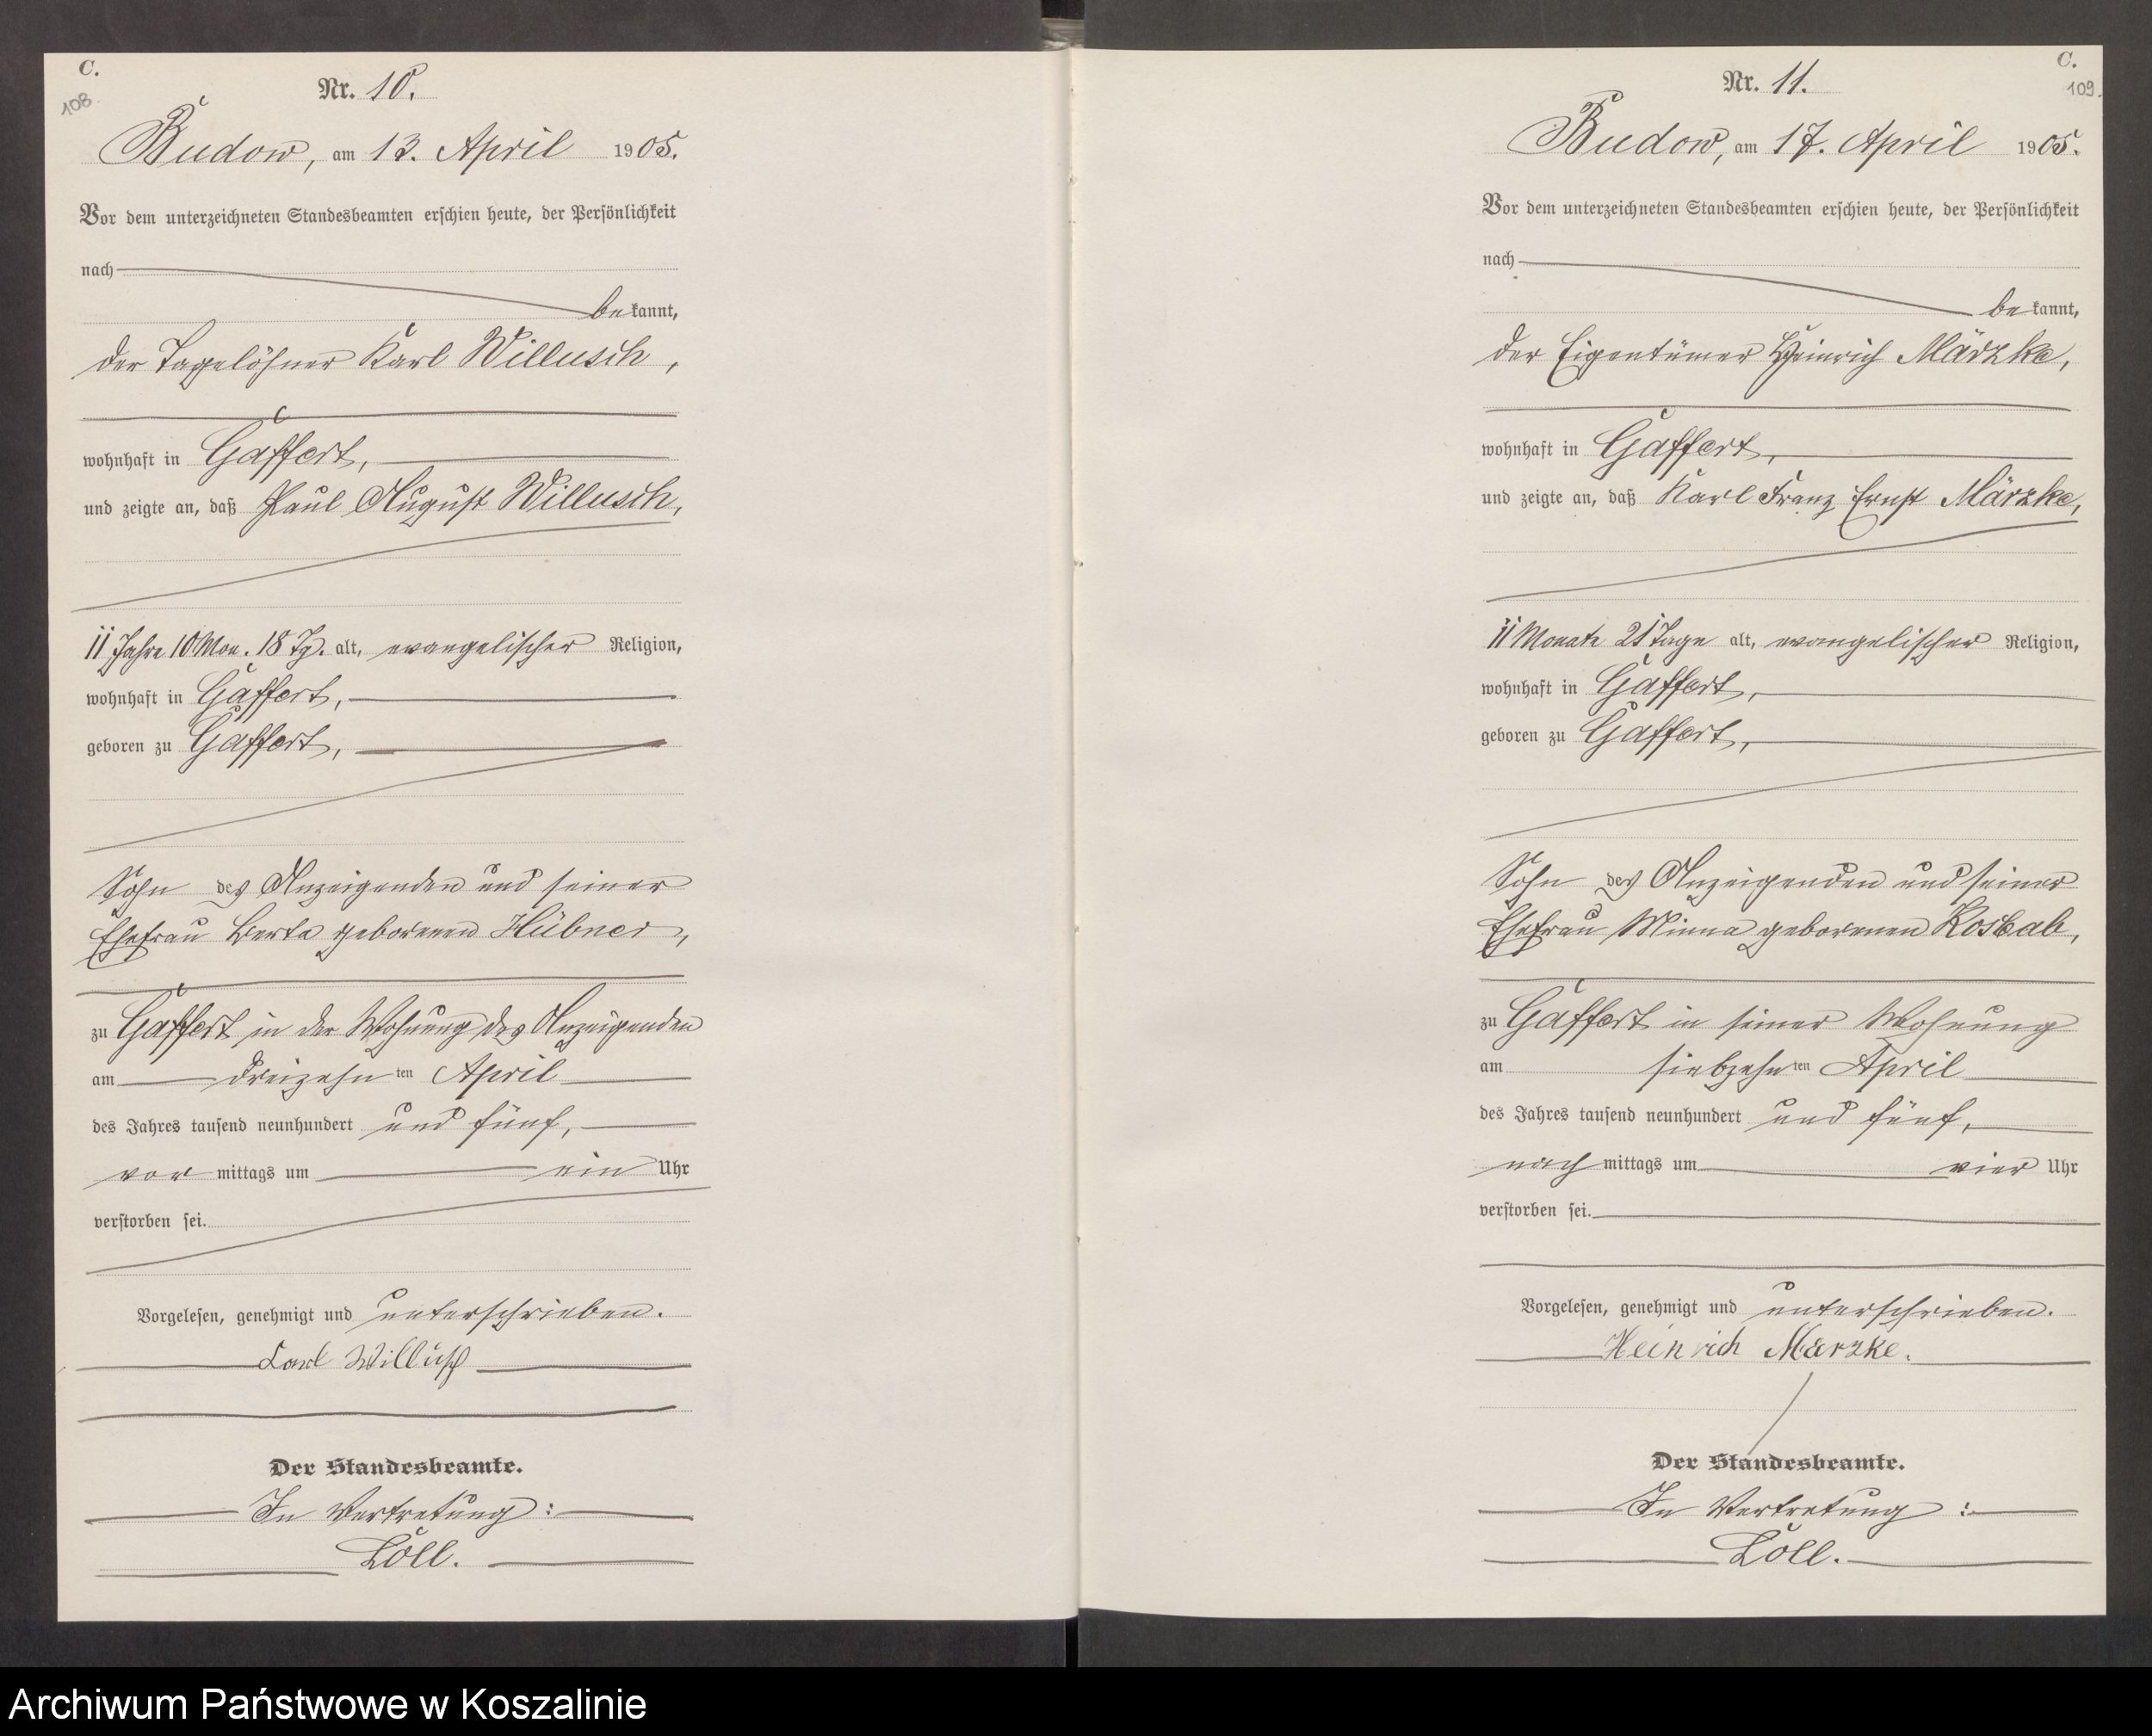 C.
108.
Nr. 10.
Budow, am 13. April 1905.
Vor dem unterzeichneten Standesbeamten erschien heute, der Persönlichkeit
nach
bekannt,
der Tagelöhner Karl Willusch,
wohnhaft in Gaffert,
und zeigte an, daß Paul August Willusch,
11 Jahre 10 Mon. 18 Tg. alt, evangelischer Religion,
wohnhaft in Gaffert,
geboren zu Gaffert,
Sohn des Anzeigenden und seiner
Ehefrau Berta geborenen Hübner,
zu Gaffert in der Wohnung des Anzeigenden
am dreizehnten April
des Jahres tausend neunhundert und fünf,
vormittags um ein Uhr
verstorben sei.
Vorgelesen, genehmigt und unterschrieben.
Carl Willusch
Der Standesbeamte.
In Vertretung:
Löll.
C.
109.
Nr. 11.
Budow, am 17. April 1905.
Vor dem unterzeichneten Standesbeamten erschien heute, der Persönlichkeit
nach
bekannt,
der Eigentümer Heinrich Märzke,
wohnhaft in Gaffert,
und zeigte an, daß Karl Franz Ernst Märzke,
11 Monate 21 Tage alt, evangelischer Religion,
wohnhaft in Gaffert,
geboren zu Gaffert,
Sohn des Anzeigenden und seiner
Ehefrau Minna geborenen Kosbab,
zu Gaffert in seiner Wohnung
am siebzehnten April
des Jahres tausend neunhundert und fünf,
nachmittags um vier Uhr
verstorben sei.
Vorgelesen, genehmigt und unterschrieben.
Heinrich Märzke.
Der Standesbeamte.
In Vertretung:
Löll.
Archiwum Państwowe w Koszalinie